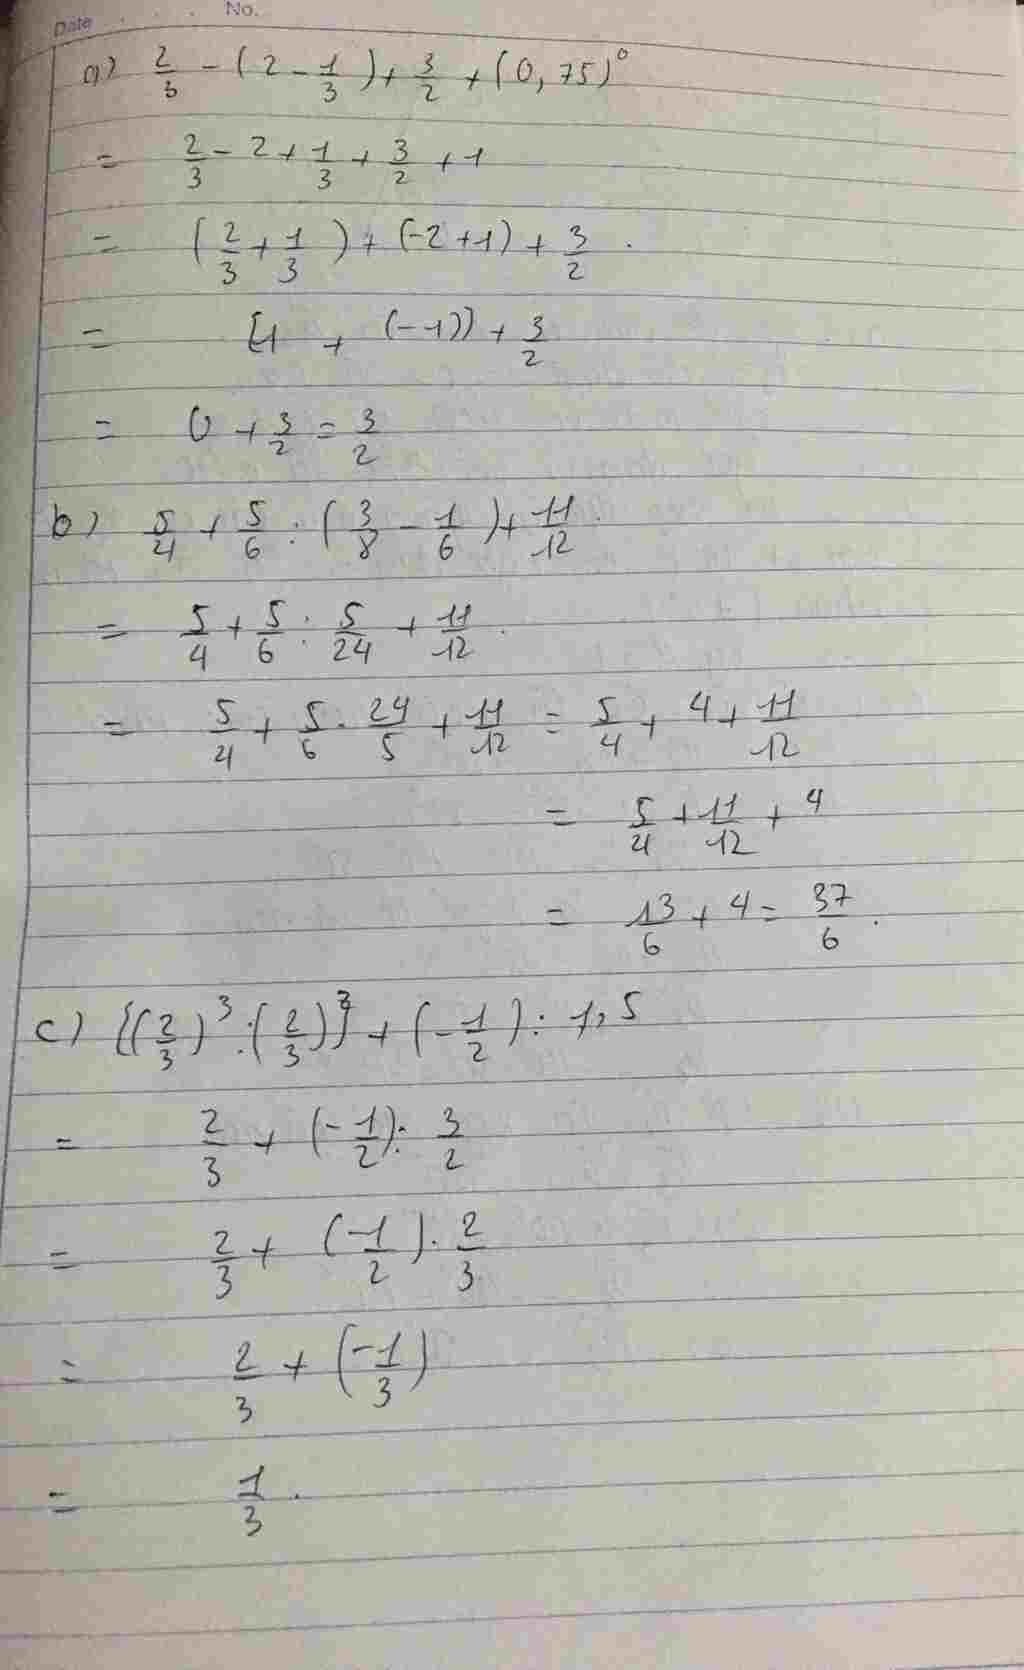 Date . . . . No.
a) 2/3 - (2 - 1/3) + 3/2 + (0,75)⁰
= 2/3 - 2 + 1/3 + 3/2 + 1
= (2/3 + 1/3) + (-2 + 1) + 3/2 .
= [1 + (-1)] + 3/2
= 0 + 3/2 = 3/2
b) 5/4 + 5/6 : (3/8 - 1/6) + 11/12 .
= 5/4 + 5/6 : 5/24 + 11/12 .
= 5/4 + 5/6 . 24/5 + 11/12 = 5/4 + 4 + 11/12
= 5/4 + 11/12 + 4
= 13/6 + 4 = 37/6 .
c) [(2/3)³ : (2/3)²] + (-1/2) : 1,5
= 2/3 + (-1/2) : 3/2
= 2/3 + (-1/2) . 2/3
= 2/3 + (-1/3)
= 1/3 .